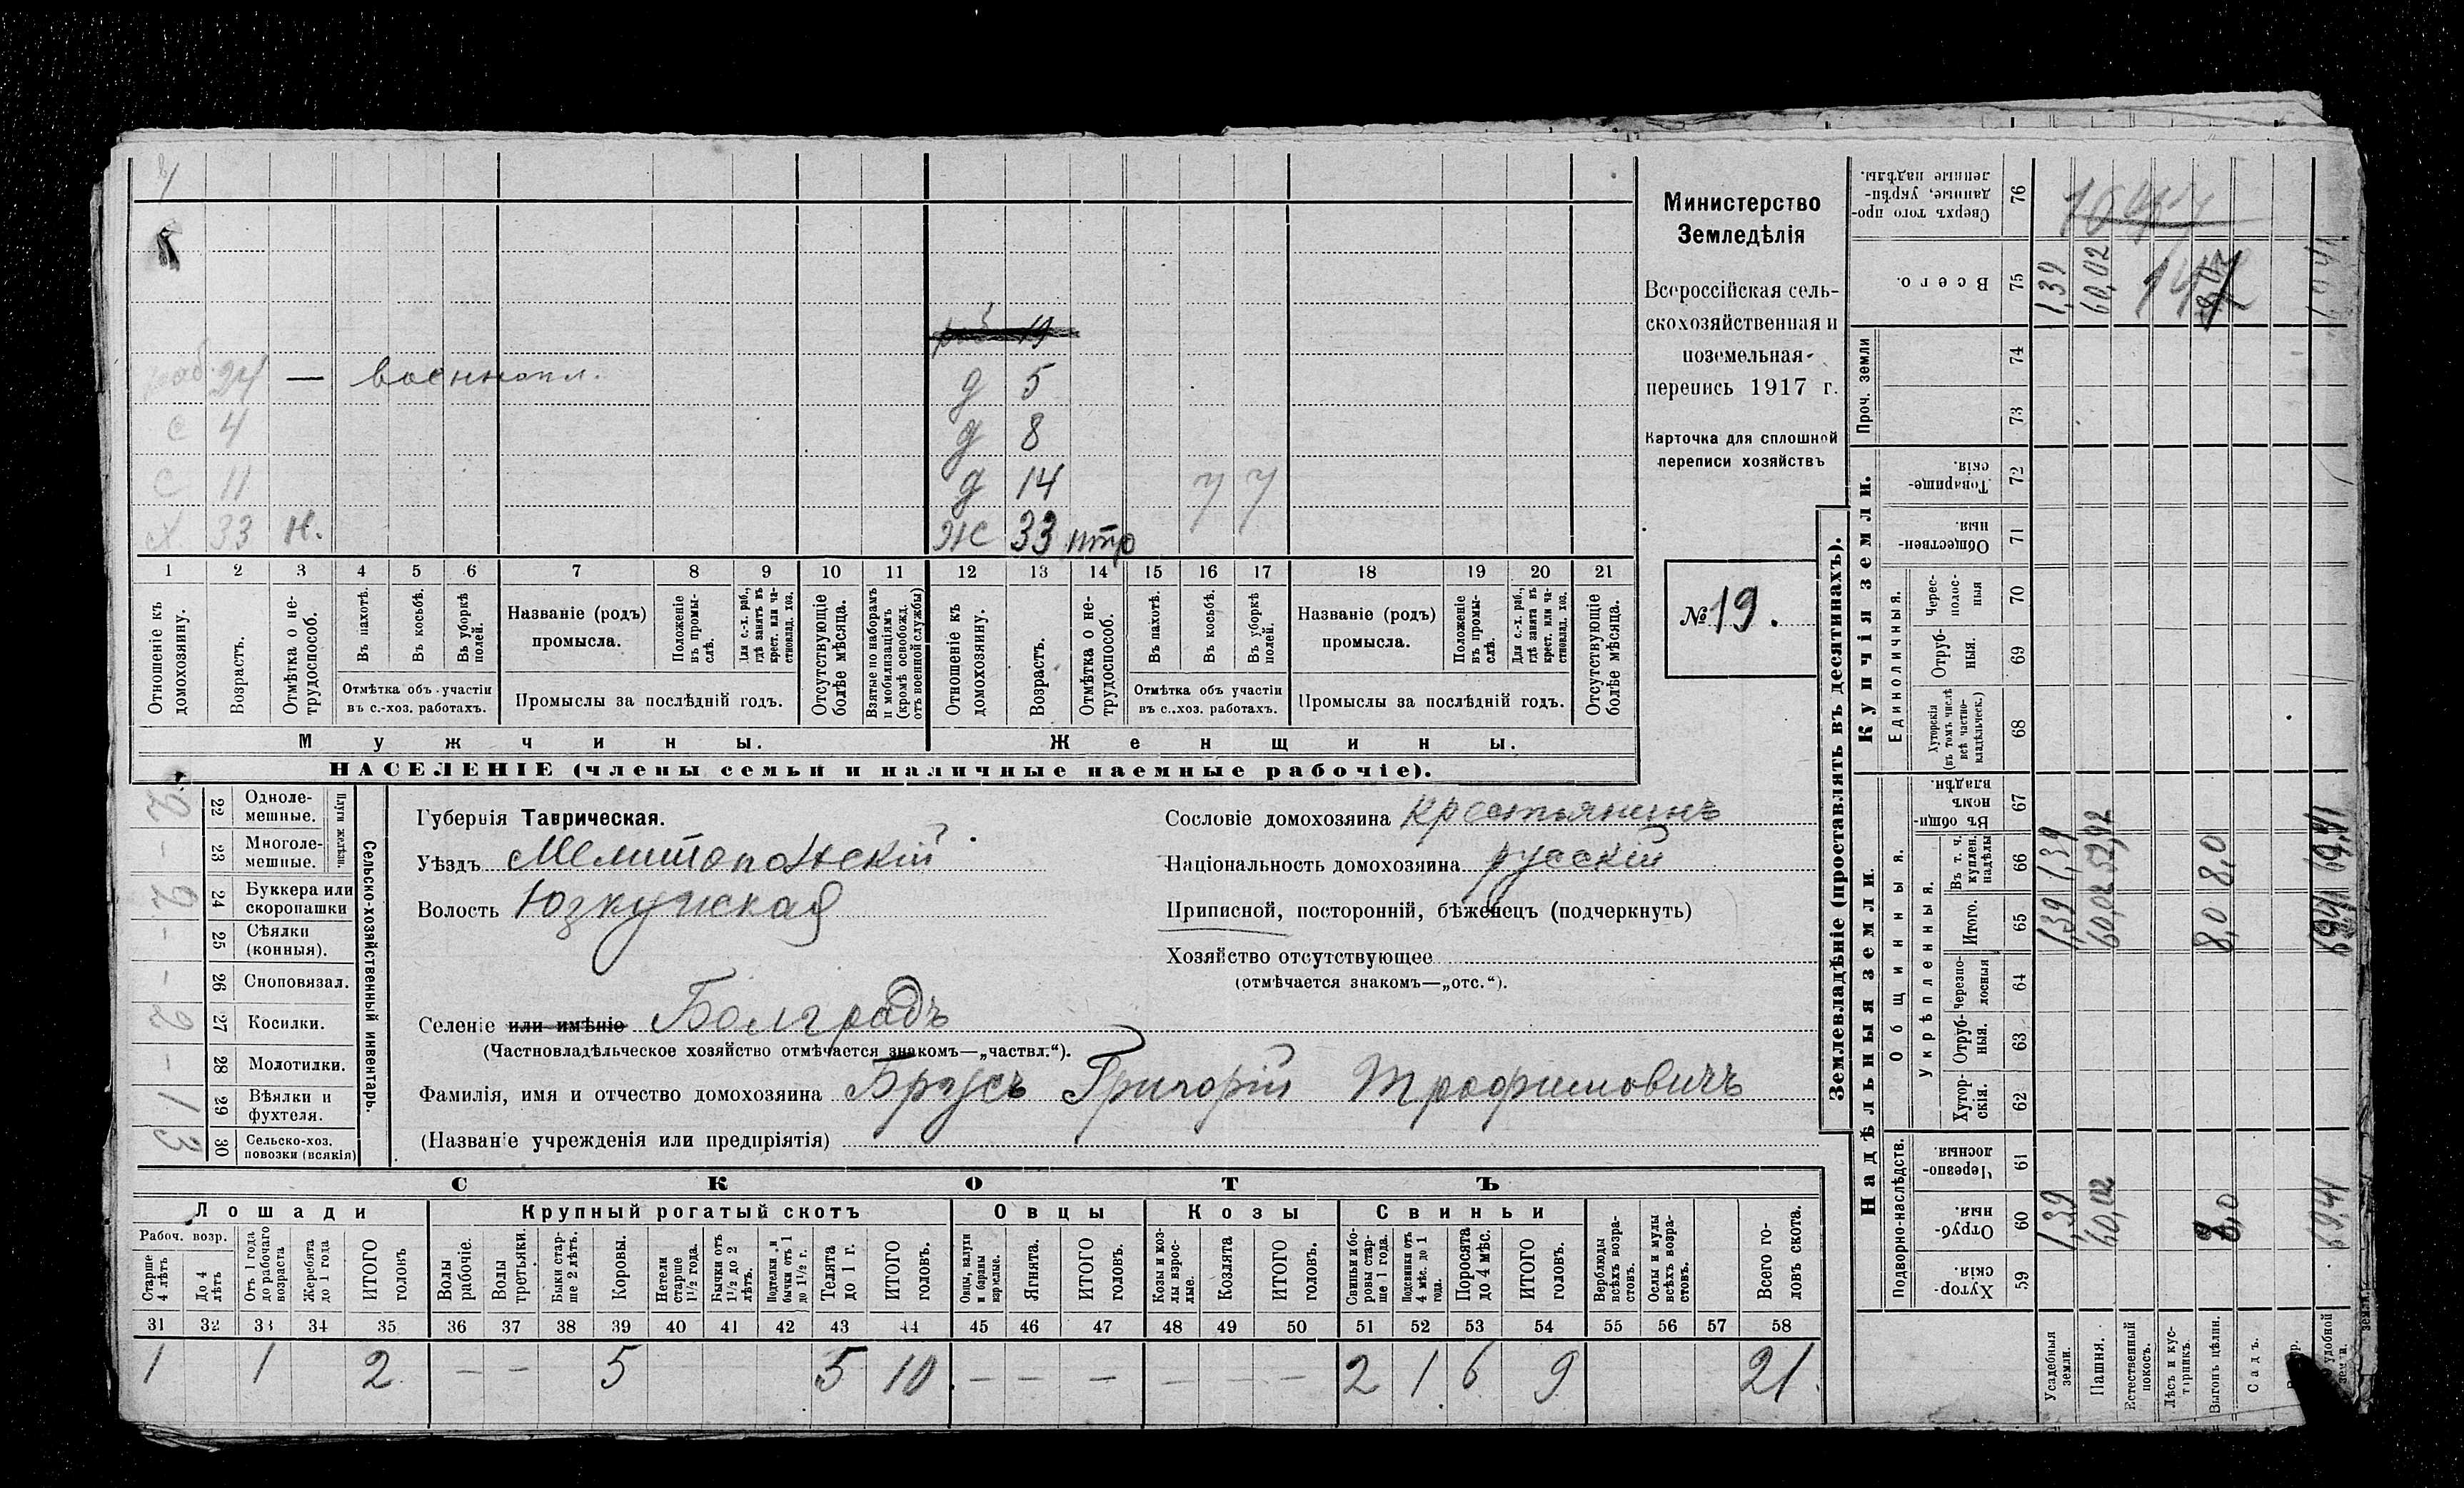 рѣб 19
раб. 24 — военнопл. д 5
с 4 д 8
с 11 д 14 7 7
х. 33 н. ж 33 нтр
1 2 3 4 5 6 7 8 9 10 11 12 13 14 15 16 17 18 19 20 21
Отношеніе къ домохозяину.
Возрастъ.
Отмѣтка о не-
трудоспособ.
Въ пахотѣ.
Въ косьбѣ.
Въ уборкѣ полей.
Отмѣтка объ участіи
въ с.-хоз. работахъ.
Названіе (родъ)
промысла.
Положеніе въ промы-
слѣ.
Для с.-х. раб.,
гдѣ занятъ въ
крест. или ча-
стновлад. хоз.
Промыслы за послѣдній годъ.
Отсутствующіе
болѣе мѣсяца.
Взятые по наборамъ
и мобилизаціямъ
(кромѣ освобожд.
отъ военной службы)
Отношеніе къ домохозяину.
Возрастъ.
Отмѣтка о не-
трудоспособ.
Въ пахотѣ.
Въ косьбѣ.
Въ уборкѣ полей.
Отмѣтка объ участіи
въ с.-хоз. работахъ.
Названіе (родъ)
промысла.
Положеніе въ промы-
слѣ.
Для с.-х. раб.,
гдѣ занятъ въ
крест. или ча-
стновлад. хоз.
Промыслы за послѣдній годъ.
Отсутствующіе
болѣе мѣсяца.
Мужчины. Женщины.
НАСЕЛЕНІЕ (члены семьи и наличные наемные рабочіе).
Министерство
Земледѣлія
Всероссійская сель-
скохозяйственная и
поземельная
перепись 1917 г.
Карточка для сплошной
переписи хозяйствъ
№ 19.
Сельско-хозяйственный инвентарь.
Плуги желѣзн.
22 Одноле-
мешные. 2
23 Многоле-
мешные. -
24 Буккера или
скоропашки 2
25 Сѣялки
(конныя). -
26 Сноповязал. -
27 Косилки. 2
28 Молотилки. -
29 Вѣялки и
фухтеля. 1
30 Сельско-хоз.
повозки (всякія) 3
Губернія Таврическая.
Уѣздъ Мелитопольскій
Волость Юзкуйская
Селеніе или имѣніе Болградъ
(Частновладѣльческое хозяйство отмѣчается знакомъ—„частвл.“).
Фамилія, имя и отчество домохозяина Брусъ Григорій Трофимовичъ
(Названіе учрежденія или предпріятія)
Сословіе домохозяина крестьянинъ
Національность домохозяина русскій
Приписной, посторонній, бѣженецъ (подчеркнуть)
Хозяйство отсутствующее
(отмѣчается знакомъ—„отс.“).
СКОТЪ
Лошади Крупный рогатый скотъ Овцы Козы Свиньи
Рабоч. возр.
Старше
4 лѣтъ
До 4
лѣтъ
Отъ 1 года
до рабочаго
возраста
Жеребята
до 1 года
ИТОГО
головъ
Волы
рабочіе.
Волы
третьяки.
Быки стар-
ше 2 лѣтъ.
Коровы.
Нетели
старше
1½ года.
Бычки отъ
1½ до 2
лѣтъ.
Подтелки и
бычки отъ 1
до 1½ г.
Телята
до 1 г.
ИТОГО
головъ.
Овцы, валухи
и бараны
взрослые.
Ягнята.
ИТОГО
головъ.
Козы и коз-
лы взрос-
лые.
Козлята
ИТОГО
головъ.
Свиньи и бо-
ровы стар-
ше 1 года.
Подсвинки отъ
4 мѣс. до 1
года.
Поросята
до 4 мѣс.
ИТОГО
головъ.
Верблюды
всѣхъ возра-
стовъ.
Ослы и мулы
всѣхъ возра-
стовъ.
Всего го-
ловъ скота.
31 32 33 34 35 36 37 38 39 40 41 42 43 44 45 46 47 48 49 50 51 52 53 54 55 56 57 58
1 1 2 — — 5 5 10 — — — — — — 2 1 6 9 21
Землевладѣніе (проставлять въ десятинахъ).
Надѣльныя земли.
Купчія земли.
Проч. земли
Подворно-наслѣдств.
Общинныя.
Укрѣпленныя.
Единоличныя.
Сверхъ того про-
данные, укрѣп-
ленные надѣлы. 76
Всего. 75 1,39 60,02
74
73
Товарище-
скія. 72
Обществен-
ныя. 71
Черес-
полос-
ныя 70
Отруб-
ныя. 69
Хуторскія
(въ томъ числѣ
всѣ частно-
владѣльческ.) 68
Въ общин-
номъ
владѣн. 67
Въ т. ч.
куплен.
надѣлы 66 1,39 52,92 8,0
Итого. 65 1,39 60,02 8,0 69,41
Черезпо-
лосныя 64
Отруб-
ныя. 63
Хутор-
скія. 62
Черезпо-
лосныя. 61
Отруб-
ныя. 60 1,39 60,02 8,0 69,41
Хутор-
скія. 59
Усадебныя
земли.
Пашня.
Естественный
покосъ.
Лѣсъ и кус-
тарникъ.
Выгонъ цѣлин.
Садъ.
удобной
земли.